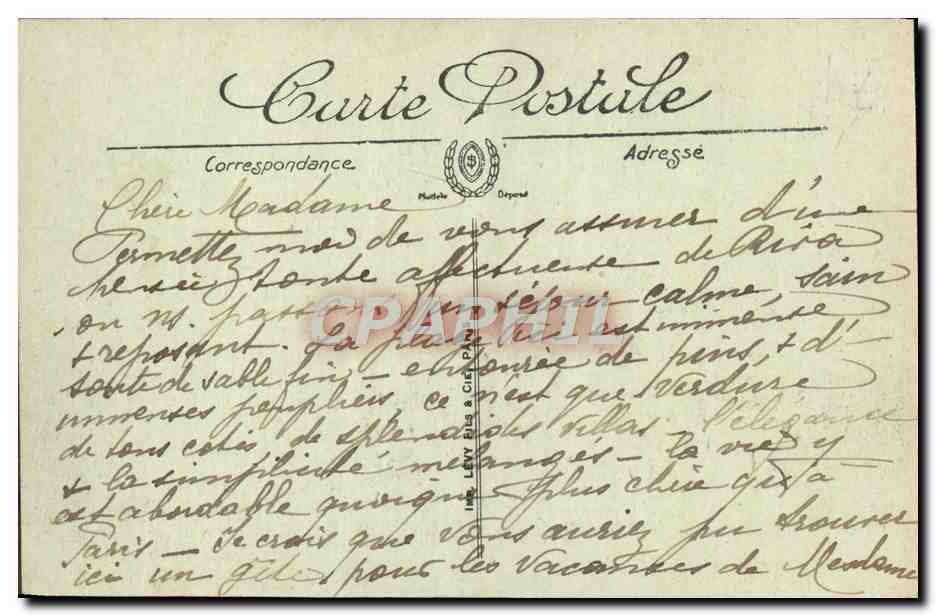 Carte Postale
Correspondance
Adresse
Modèle Déposé
Chère Madame
Permettez moi de vous assurer d'une
pensée toute affectueuse de Riva
ou ns. passons un séjour calme, sain
+ reposant. La plage ici est immense
toute de sable fin – entourée de pins, + d'
immenses peupliers, ce n'est que verdure
de tous cotés de splendides villas l'élégance
+ la simplicité mélangés – la vie y
est abordable quoique plus chère qu'à
Paris – Je crois que vous auriez pu trouver
ici un gîte pour les vacances de Mesdames
IMP. LÉVY FILS & CIE, PARIS
CPAPHIL